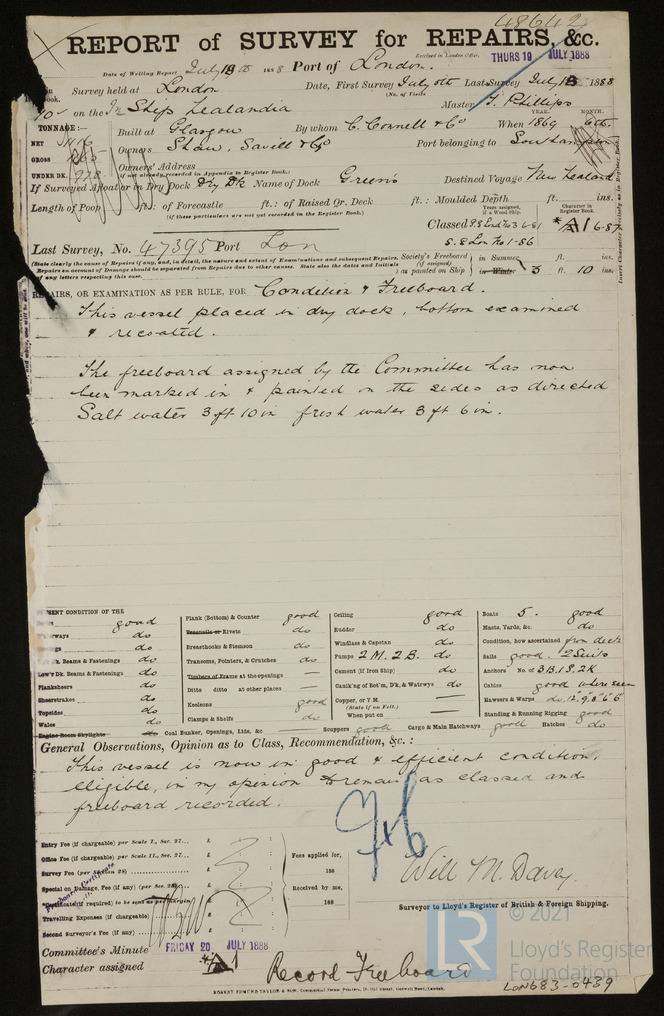 48642
REPORT of SURVEY for REPAIRS, &c.
Received in London Office, THURS 19 JULY 1888
Date of Writing Report July 19th 1888 Port of London.
Survey held at London Date, First Survey July 9th Last Survey July 18 1888
(No. of Visits
10 on the Ship Zealandia Master J. Phillips
TONNAGE:— YEAR. MONTH.
NET Built at Glasgow By whom C. Connell & Co When 1869
GROSS Owners Shaw, Savill & Co Port belonging to Southampton
UNDER DK. Owners' Address
(if not already recorded in Appendix to Register Book.)
If Surveyed Afloat or in Dry Dock Dry Dk Name of Dock Green's Destined Voyage New Zealand
Length of Poop ft.: of Forecastle ft.: of Raised Qr. Deck ft.: Moulded Depth ft. ins.
(if these particulars are not yet recorded in the Register Book.)
Years assigned, if a Wood Ship. Character in Register Book.
Classed S.S Lon No 3 6-81 *A1 6-87
Last Survey, No. 47395 Port Lon S.S Lon No 1-86
(State clearly the cause of Repairs if any, and, in detail, the nature and extent of Examinations and subsequent Repairs. Society's Freeboard in Summer ft. ins.
Repairs on account of Damage should be separated from Repairs due to other causes. State also the dates and Initials (if assigned)
of any letters respecting this case. as painted on Ship in Winter 3 ft. 10 ins.
REPAIRS, OR EXAMINATION AS PER RULE, FOR Condition & Freeboard.
This vessel placed in dry dock, bottom examined
& recoated.
The freeboard assigned by the Committee has now
been marked in & painted on the sides as directed
Salt water 3 ft 10 in fresh water 3 ft 6 in.
PRESENT CONDITION OF THE
good Plank (Bottom) & Counter good Ceiling good Boats 5. good
do Treenails or Rivets do Rudder do Masts, Yards, &c. do
do Breasthooks & Stemson do Windlass & Capstan do Condition, how ascertained from deck
Dk. Beams & Fastenings do Transoms, Pointers, & Crutches do Pumps 2 M. 2 B. do Sails good. 2 Suits
Low'r Dk. Beams & Fastenings do Timbers of Frame at the openings — Cement (if Iron Ship) do Anchors No. of 3B.1S.2K
Planksheers do Ditto ditto at other places — Caulk'ng of Bot'm, D'k, & Watrwys do Cables good where seen
Sheerstrakes do Keelsons good Copper, or Y.M. — Hawsers & Warps do. 12" 9" 8" 6" 6"
Topsides do Clamps & Shelfs do (State if on Felt.) Standing & Running Rigging good
Wales do When put on —
Engine Room Skylights do Coal Bunker, Openings, Lids, &c. — Scuppers good Cargo & Main Hatchways good Hatches do
General Observations, Opinion as to Class, Recommendation, &c.:
This vessel is now in good & efficient condition,
eligible, in my opinion to remain as classed and
freeboard recorded.
Entry Fee (if chargeable) per Scale I., Sec. 27... £
Office Fee (if chargeable) per Scale II., Sec. 27... £ Fees applied for,
Survey Fee (Section 28) £ 188
Special on Damage, Fee (if any) (per Sec. 28) £ Received by me,
*Certificate (if required) to be sent as per margin £ 188
Travelling Expenses (if chargeable) £
Second Surveyor's Fee (if any) £
Freeboard Certificate
Will M. Davey.
Surveyor to Lloyd's Register of British & Foreign Shipping.
Committee's Minute FRIDAY 20 JULY 1888
Character assigned *A1
Record Freeboard
ROBERT EDMUND TAYLOR & SON
LR © 2021
Lloyd's Register
Foundation
LON683-0439